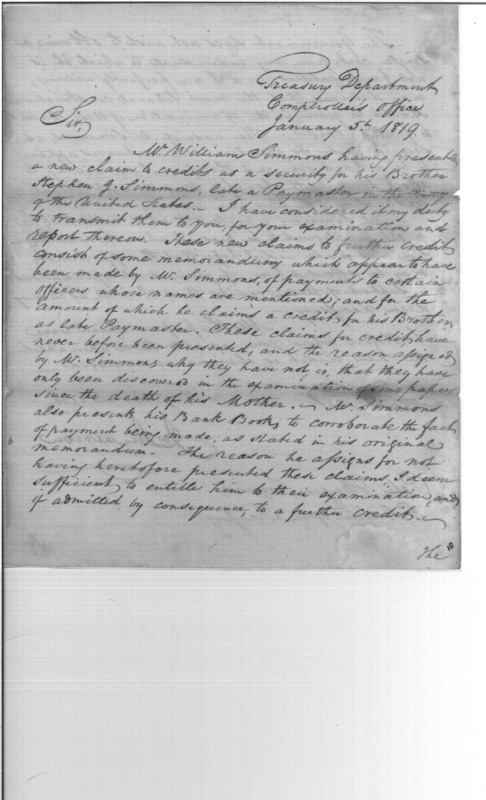 Treasury Department
Comptroller's Office
January 5th 1819.
Sir,
Mr William Simmons having presented
a new claim to credits as a security for his Brother
Stephen G. Simmons, late a Paymaster in the Army
of the United States. — I have considered it my duty
to transmit them to you, for your examination and
report thereon. These new claims to further credit
consist of some memorandums which appear to have
been made by Mr. Simmons, of payments to certain
officers whose names are mentioned; and for the
amount of which he claims a credit for his Brother,
as late Paymaster. These claims for credit, have
never before been presented, and the reason assigned
by Mr. Simmons, why they have not is, that they have
only been discovered in the examination of some papers
since the death of his Mother. — Mr. Simmons
also presents his Bank Book, to corroborate the fact
of payment being made, as stated in his original
memorandum. The reason he assigns for not
having heretofore presented these claims, I deem
sufficient to entitle him to their examination, and
if admitted by consequence, to a further credit. —
The